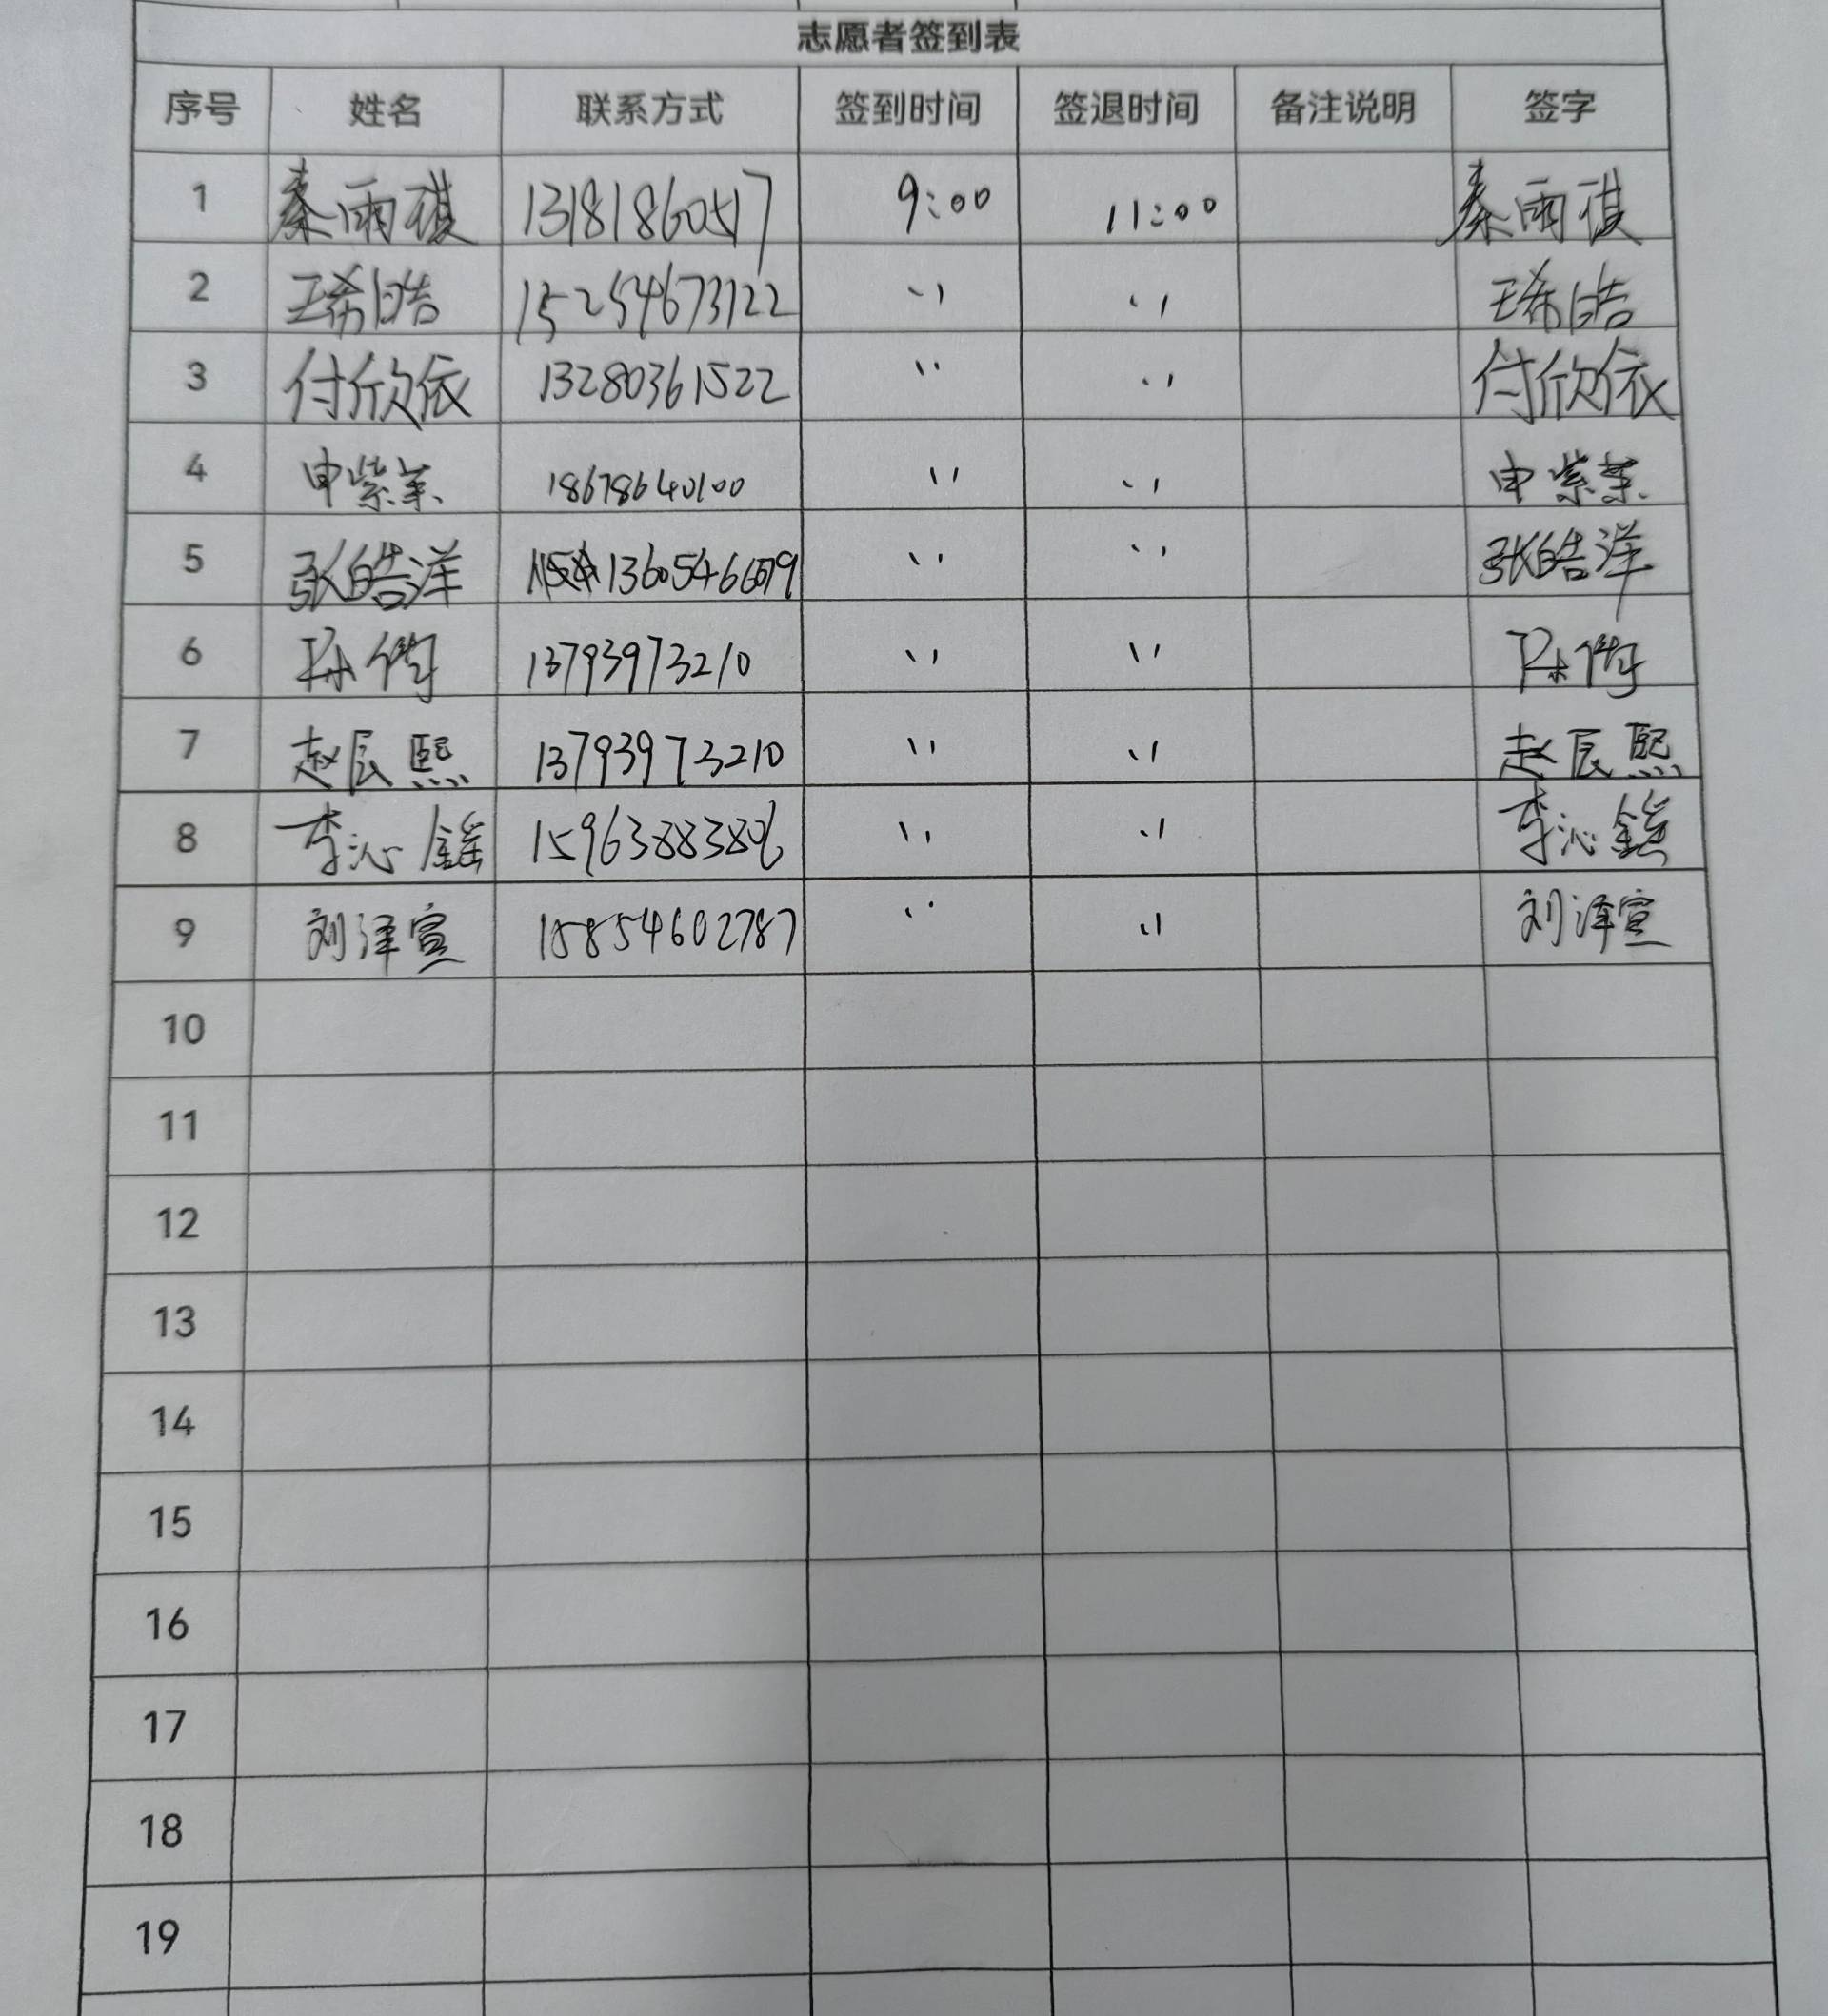 志愿者签到表
序号 姓名 联系方式 签到时间 签退时间 备注说明 签字
1 秦雨祺 13181860517 9:00 11:00 秦雨祺
2 王希皓 15254673122 〃 〃 王希皓
3 付欣依 13280361522 〃 〃 付欣依
4 申紫 18678640100 〃 〃 申紫
5 张皓洋 〃 〃 张皓洋
6 孙 13793973210 〃 〃 孙
7 赵辰熙 13793973210 〃 〃 赵辰熙
8 李沁鎐 〃 〃 李沁鎐
9 刘泽宣 15854602787 〃 〃 刘泽宣
10
11
12
13
14
15
16
17
18
19